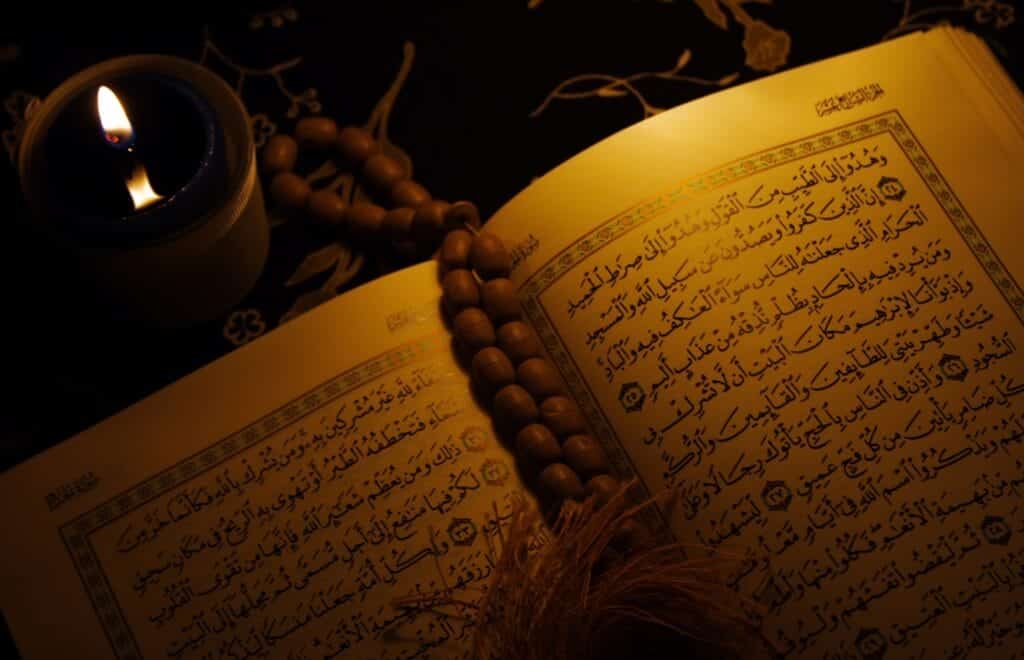 الجزء السابع عشر
وَهُدُوٓا۟ إِلَى ٱلطَّيِّبِ مِنَ ٱلْقَوْلِ وَهُدُوٓا۟ إِلَىٰ صِرَٰطِ ٱلْحَمِيدِ
٢٤ إِنَّ ٱلَّذِينَ كَفَرُوا۟ وَيَصُدُّونَ عَن سَبِيلِ ٱللَّهِ وَٱلْمَسْجِدِ
ٱلْحَرَامِ ٱلَّذِى جَعَلْنَٰهُ لِلنَّاسِ سَوَآءً ٱلْعَٰكِفُ فِيهِ وَٱلْبَادِ
وَمَن يُرِدْ فِيهِ بِإِلْحَادٍۭ بِظُلْمٍ نُّذِقْهُ مِنْ عَذَابٍ أَلِيمٍ ٢٥
وَإِذْ بَوَّأْنَا لِإِبْرَٰهِيمَ مَكَانَ ٱلْبَيْتِ أَن لَّا تُشْرِكْ بِى
شَيْـًٔا وَطَهِّرْ بَيْتِىَ لِلطَّآئِفِينَ وَٱلْقَآئِمِينَ وَٱلرُّكَّعِ
ٱلسُّجُودِ ٢٦ وَأَذِّن فِى ٱلنَّاسِ بِٱلْحَجِّ يَأْتُوكَ رِجَالًا وَعَلَىٰ
كُلِّ ضَامِرٍ يَأْتِينَ مِن كُلِّ فَجٍّ عَمِيقٍ ٢٧ لِّيَشْهَدُوا۟
لَهُمْ وَيَذْكُرُوا۟ ٱسْمَ ٱللَّهِ فِىٓ أَيَّامٍ
مِّنۢ بَهِيمَةِ ٱلْأَنْعَٰمِ فَكُلُوا۟ مِنْهَا
٢٨ ثُمَّ لْيَقْضُوا۟ تَفَثَهُمْ وَلْيُوفُوا۟
بِٱلْبَيْتِ ٱلْعَتِيقِ ٢٩
سورة الحج
لِلَّهِ غَيْرَ مُشْرِكِينَ بِهِۦ وَمَن يُشْرِكْ بِٱللَّهِ فَكَأَنَّمَا خَرَّ مِنَ
فَتَخْطَفُهُ ٱلطَّيْرُ أَوْ تَهْوِى بِهِ ٱلرِّيحُ فِى مَكَانٍ سَحِيقٍ
٣١ ذَٰلِكَ وَمَن يُعَظِّمْ شَعَٰٓئِرَ ٱللَّهِ فَإِنَّهَا مِن تَقْوَى ٱلْقُلُوبِ
٣٢ لَكُمْ فِيهَا مَنَٰفِعُ إِلَىٰٓ أَجَلٍ مُّسَمًّى ثُمَّ مَحِلُّهَآ إِلَى ٱلْبَيْتِ
٣٣ وَلِكُلِّ أُمَّةٍ جَعَلْنَا مَنسَكًا لِّيَذْكُرُوا۟
بَهِيمَةِ ٱلْأَنْعَٰمِ